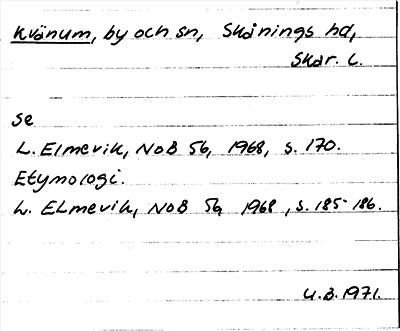 Kvänum, by och sn, Skånings hd,
Skar. l.
se
L. Elmevik, NoB 56, 1968, s. 170.
Etymologi.
L. Elmevik, NoB 56, 1968, s. 185-186.
U.B. 1971.